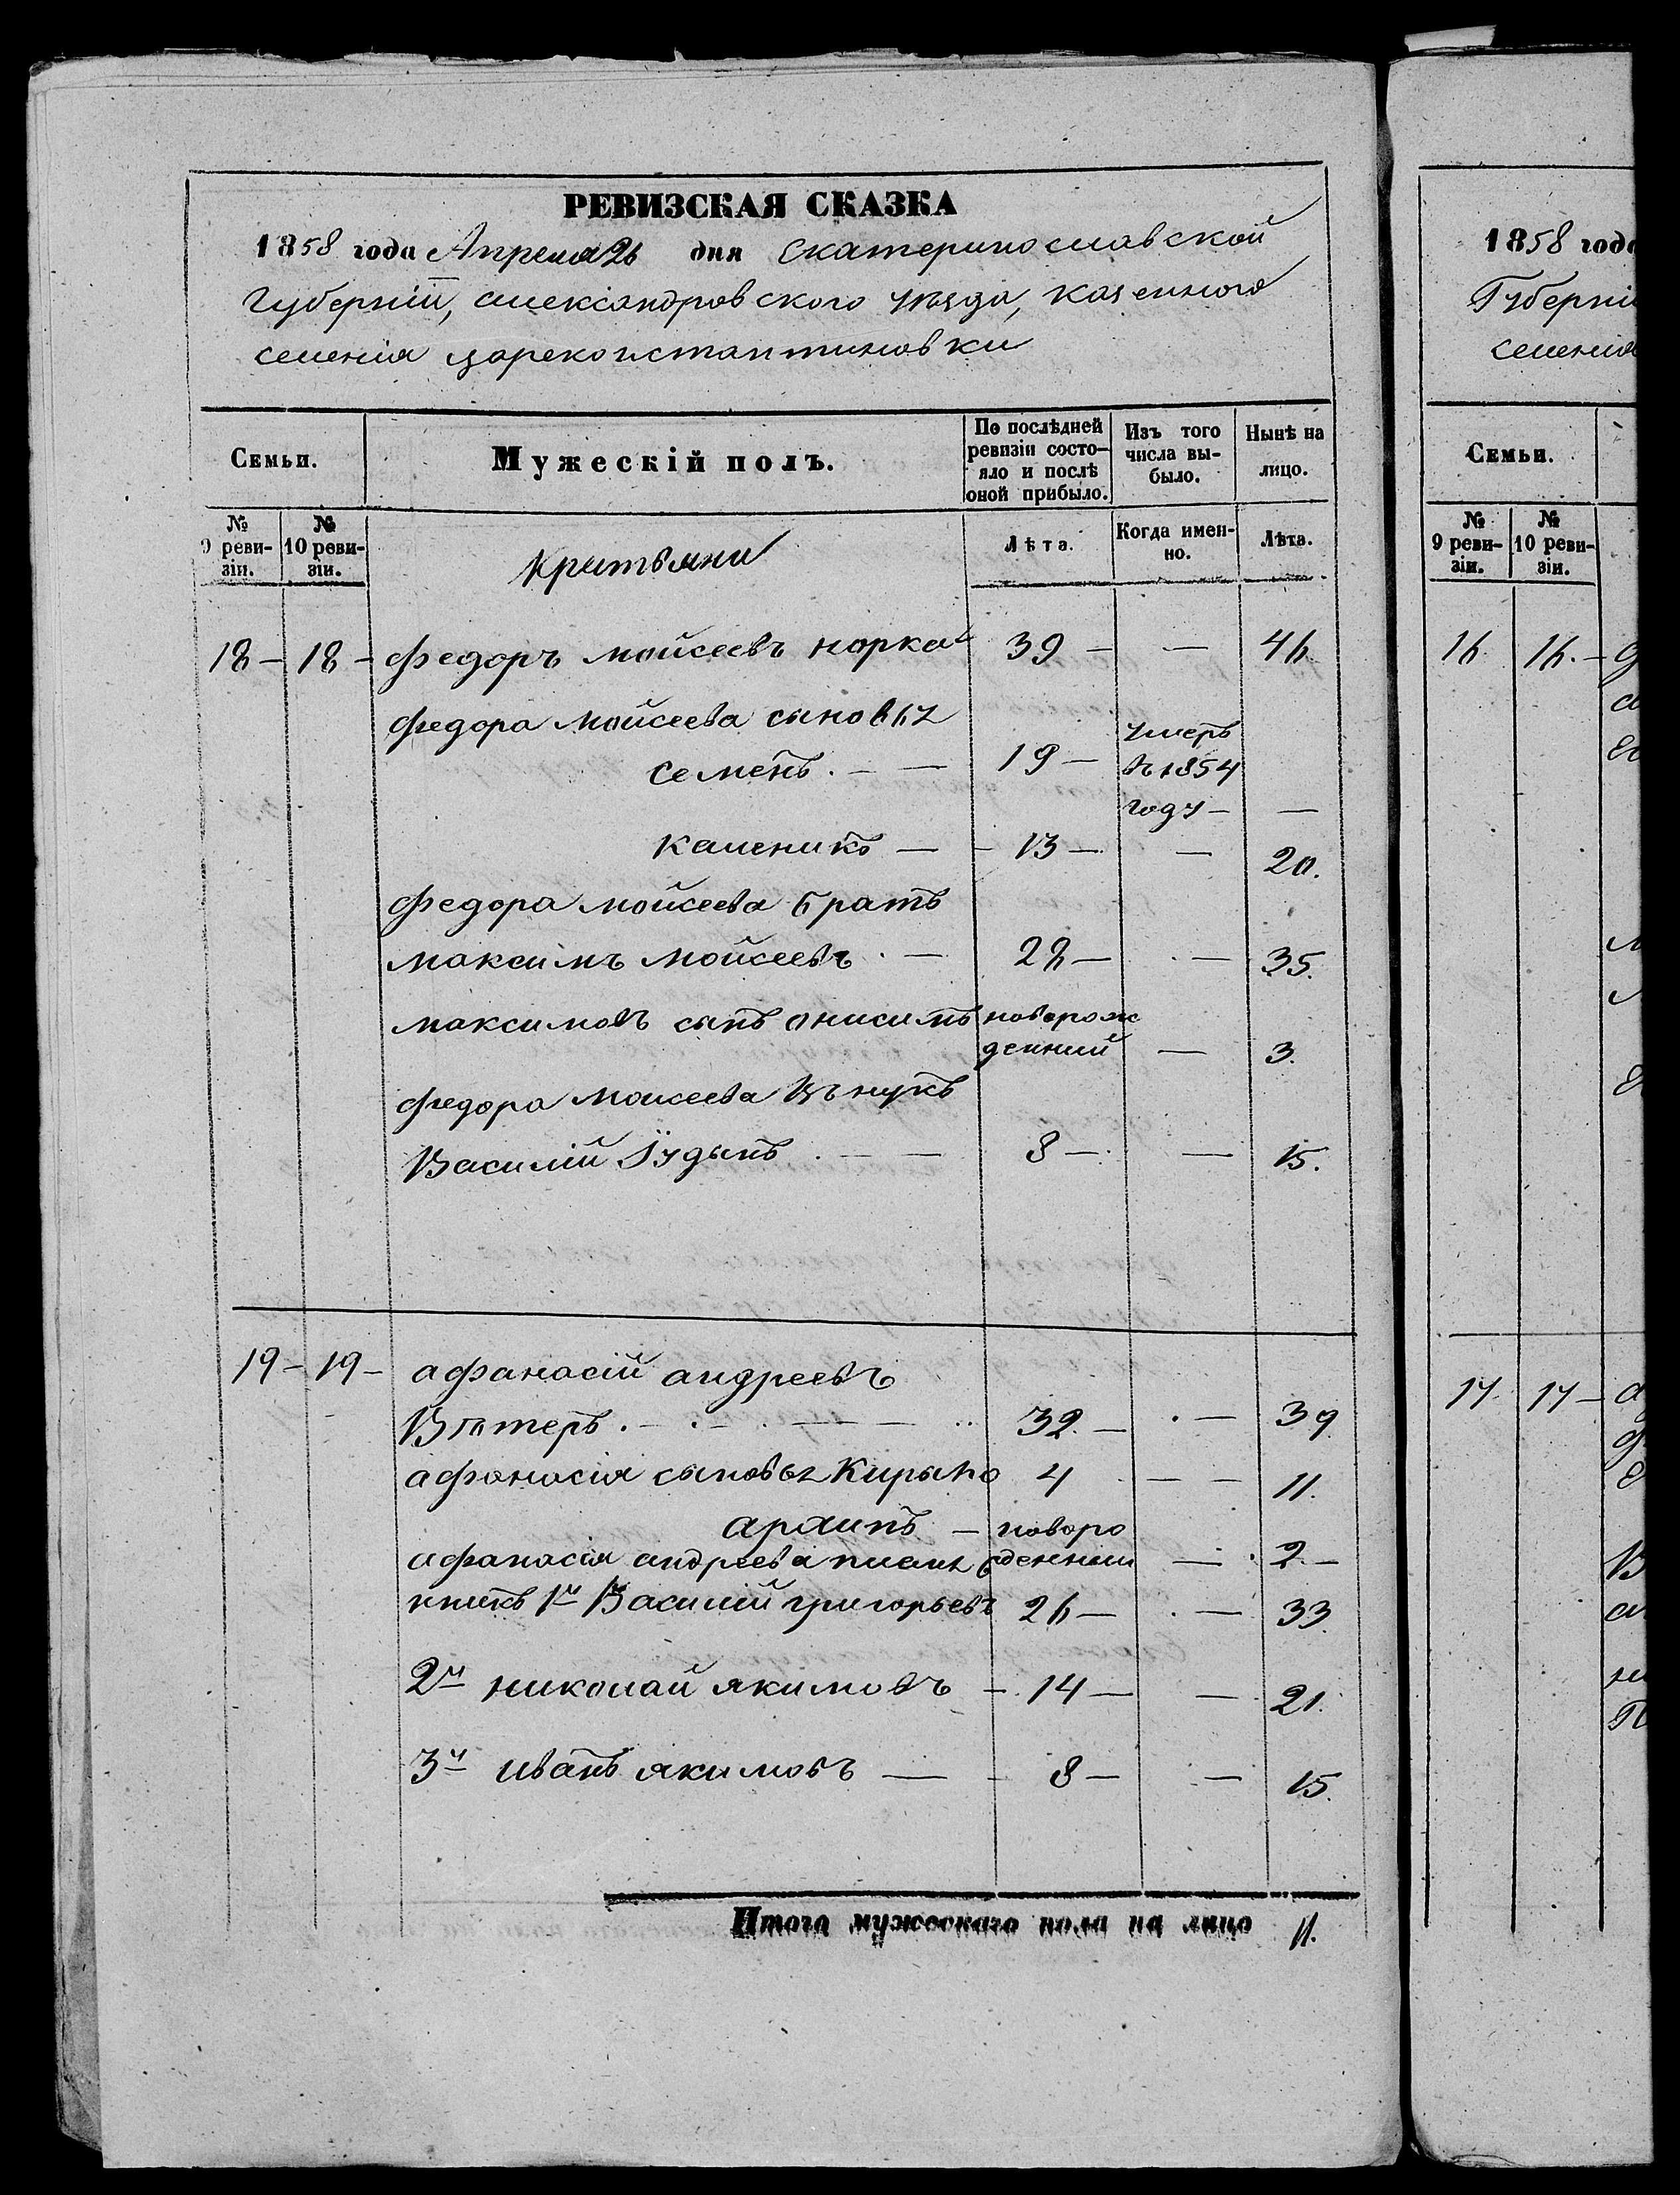 РЕВИЗСКАЯ СКАЗКА
1858 года Апреля 26 дня Екатеринославской
Губерніи, александровского уѣзда, казенного
селенія цареконстантиновки
Семьи. Мужескій полъ. По послѣдней ревизіи состо-яло и послѣ оной прибыло. Изъ того числа вы-было. Нынѣ на лицо.
№ 9 реви-зіи. № 10 реви-зіи. Лѣта. Когда имен-но. Лѣта.
18 – 18 – Федоръ мойсеевъ норка 39 – — 46
федора мойсеева сыновья
семенъ. – — 19 – умеръ въ 1854 году – —
каленикъ — – 13 – — 20.
федора мойсеева братъ
максимъ мойсеевъ. – 28 – — 35.
максимовъ сынъ онисимъ новорожденний — 3.
федора моисеева Внукъ
Василій Іудынъ . – — 8 – — 15.
19 – 19 – афанасій андреевъ
Вѣтеръ. – 32. – . – 39
афанасія сыновья Кирыло 4 – – 11.
архипъ – новоро
афанасія андреева племя денний — 2 –
никъ 1й Василий григорьевъ 26 – . – 33.
2й николай якимовъ – 14 – – 21.
3й иванъ якимовъ — – 8 – — 15.
Итого мужескаго пола на лицо 11.
1858 года
Губерні
селенія
Семьи.
№ 9 реви-зіи. № 10 реви-зіи.
16. 16. –
17. 17 –